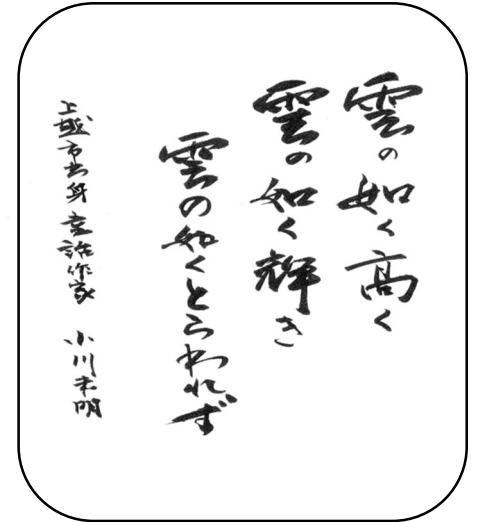 雲の如く高く
雲の如く輝き
雲の如くとらわれず
上越市出身 童話作家 小川未明